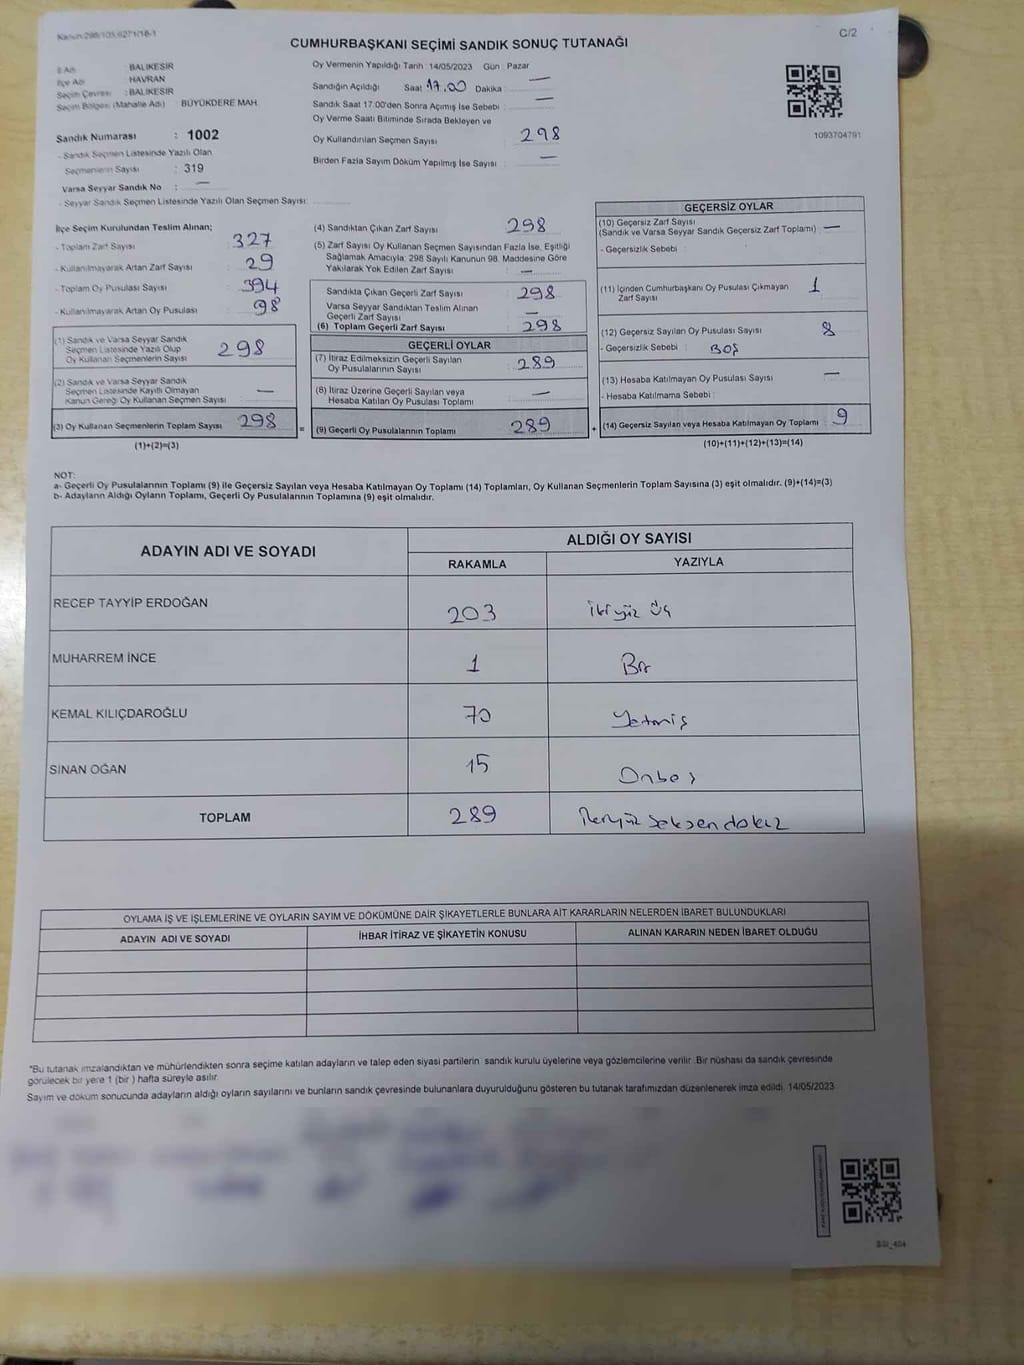 Kanun:298/105,6271/18-1
C/2
CUMHURBAŞKANI SEÇİMİ SANDIK SONUÇ TUTANAĞI
İl Adı : BALIKESİR
İlçe Adı : HAVRAN
Seçim Çevresi : BALIKESİR
Seçim Bölgesi (Mahalle Adı) : BÜYÜKDERE MAH.
Sandık Numarası : 1002
- Sandık Seçmen Listesinde Yazılı Olan
Seçmenlerin Sayısı : 319
Varsa Seyyar Sandık No : —
- Seyyar Sandık Seçmen Listesinde Yazılı Olan Seçmen Sayısı:
Oy Vermenin Yapıldığı Tarih : 14/05/2023 Gün : Pazar
Sandığın Açıldığı Saat 17.00 Dakika : —
Sandık Saat 17:00'den Sonra Açımış İse Sebebi : —
Oy Verme Saati Bitiminde Sırada Bekleyen ve
Oy Kullandırılan Seçmen Sayısı : 298
Birden Fazla Sayım Döküm Yapılmış İse Sayısı : —
1093704791
İlçe Seçim Kurulundan Teslim Alınan;
- Toplam Zarf Sayısı : 327
- Kullanılmayarak Artan Zarf Sayısı : 29
- Toplam Oy Pusulası Sayısı : 394
- Kullanılmayarak Artan Oy Pusulası : 98
(1) Sandık ve Varsa Seyyar Sandık
Seçmen Listesinde Yazılı Olup
Oy Kullanan Seçmenlerin Sayısı 298
(2) Sandık ve Varsa Seyyar Sandık
Seçmen Listesinde Kayıtlı Olmayan
Kanun Gereği Oy Kullanan Seçmen Sayısı : —
(3) Oy Kullanan Seçmenlerin Toplam Sayısı 298
(1)+(2)=(3)
(4) Sandıktan Çıkan Zarf Sayısı : 298
(5) Zarf Sayısı Oy Kullanan Seçmen Sayısından Fazla İse, Eşitliği
Sağlamak Amacıyla; 298 Sayılı Kanunun 98. Maddesine Göre
Yakılarak Yok Edilen Zarf Sayısı : —
Sandıkta Çıkan Geçerli Zarf Sayısı : 298
Varsa Seyyar Sandıktan Teslim Alınan
Geçerli Zarf Sayısı : —
(6) Toplam Geçerli Zarf Sayısı : 298
GEÇERLİ OYLAR
(7) İtiraz Edilmeksizin Geçerli Sayılan
Oy Pusulalarının Sayısı : 289
(8) İtiraz Üzerine Geçerli Sayılan veya
Hesaba Katılan Oy Pusulası Toplamı : —
= (9) Geçerli Oy Pusulalarının Toplamı : 289
GEÇERSİZ OYLAR
(10) Geçersiz Zarf Sayısı
(Sandık ve Varsa Seyyar Sandık Geçersiz Zarf Toplamı) : —
- Geçersizlik Sebebi :
(11) İçinden Cumhurbaşkanı Oy Pusulası Çıkmayan
Zarf Sayısı : 1
(12) Geçersiz Sayılan Oy Pusulası Sayısı : 8
- Geçersizlik Sebebi : BOŞ
(13) Hesaba Katılmayan Oy Pusulası Sayısı : —
- Hesaba Katılmama Sebebi :
+ (14) Geçersiz Sayılan veya Hesaba Katılmayan Oy Toplamı : 9
(10)+(11)+(12)+(13)=(14)
NOT:
a- Geçerli Oy Pusulalarının Toplamı (9) ile Geçersiz Sayılan veya Hesaba Katılmayan Oy Toplamı (14) Toplamları, Oy Kullanan Seçmenlerin Toplam Sayısına (3) eşit olmalıdır. (9)+(14)=(3)
b- Adayların Aldığı Oyların Toplamı, Geçerli Oy Pusulalarının Toplamına (9) eşit olmalıdır.
ADAYIN ADI VE SOYADI
ALDIĞI OY SAYISI
RAKAMLA YAZIYLA
RECEP TAYYİP ERDOĞAN 203 İkiyüz Üç
MUHARREM İNCE 1 Bir
KEMAL KILIÇDAROĞLU 70 Yetmiş
SİNAN OĞAN 15 Onbeş
TOPLAM 289 İkiyüz seksen dokuz
OYLAMA İŞ VE İŞLEMLERİNE VE OYLARIN SAYIM VE DÖKÜMÜNE DAİR ŞİKAYETLERLE BUNLARA AİT KARARLARIN NELERDEN İBARET BULUNDUKLARI
ADAYIN ADI VE SOYADI İHBAR İTİRAZ VE ŞİKAYETİN KONUSU ALINAN KARARIN NEDEN İBARET OLDUĞU
*Bu tutanak imzalandıktan ve mühürlendikten sonra seçime katılan adayların ve talep eden siyasi partilerin sandık kurulu üyelerine veya gözlemcilerine verilir. Bir nüshası da sandık çevresinde
görülecek bir yere 1 (bir ) hafta süreyle asılır.
Sayım ve döküm sonucunda adayların aldığı oyların sayılarını ve bunların sandık çevresinde bulunanlara duyurulduğunu gösteren bu tutanak tarafımızdan düzenlenerek imza edildi. 14/05/2023